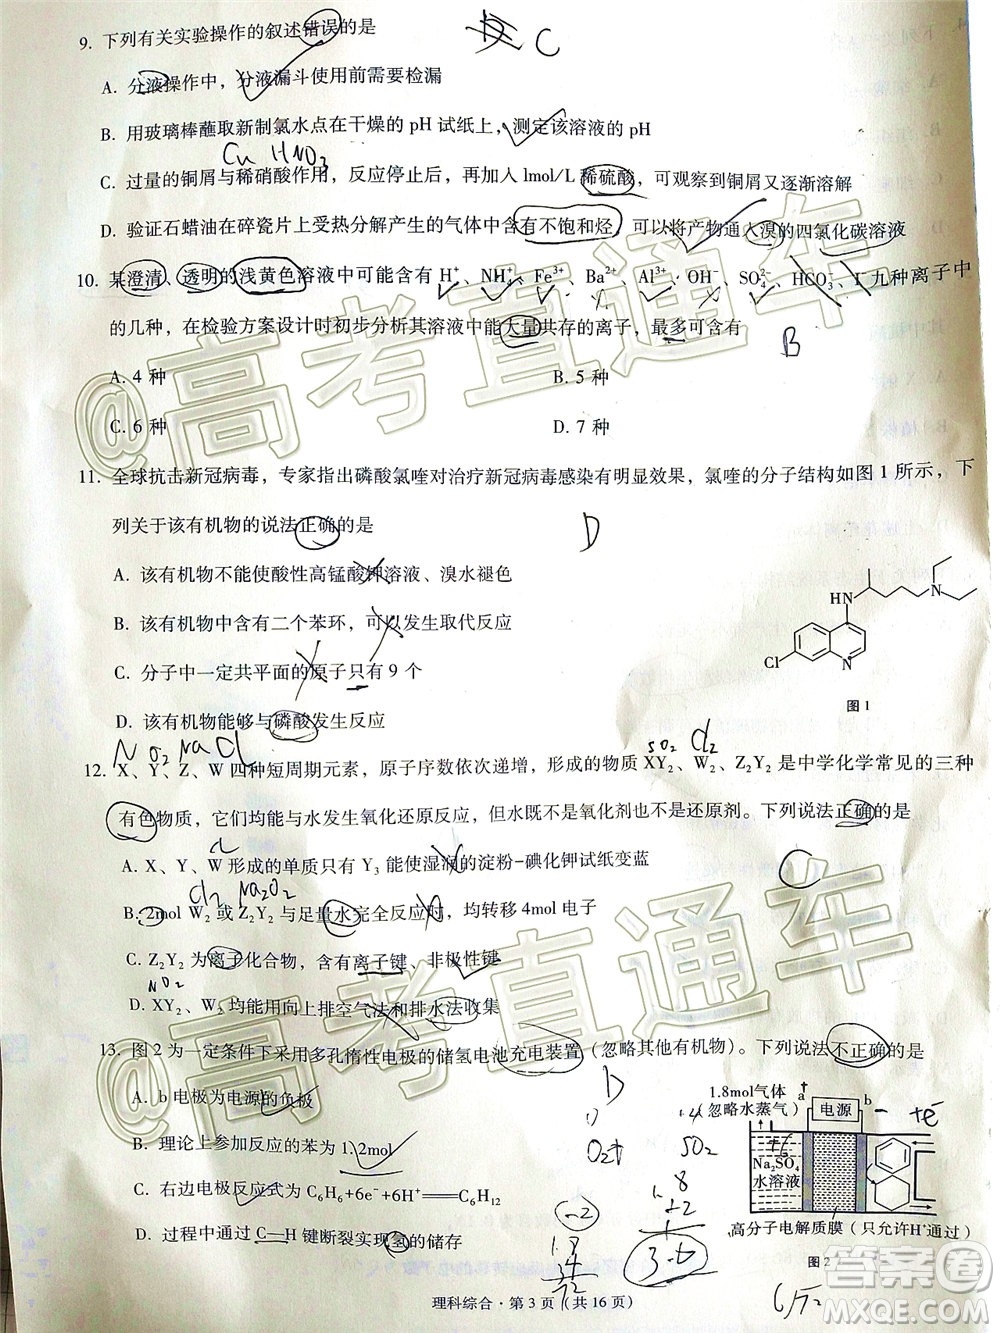 9. 下列有关实验操作的叙述错误的是
C
A. 分液操作中，分液漏斗使用前需要检漏
B. 用玻璃棒蘸取新制氯水点在干燥的 pH 试纸上，测定该溶液的 pH
Cu HNO3
C. 过量的铜屑与稀硝酸作用，反应停止后，再加入 1mol/L 稀硫酸，可观察到铜屑又逐渐溶解
D. 验证石蜡油在碎瓷片上受热分解产生的气体中含有不饱和烃，可以将产物通入溴的四氯化碳溶液
10. 某澄清、透明的浅黄色溶液中可能含有 H⁺、NH₄⁺、Fe³⁺、Ba²⁺、Al³⁺、OH⁻、SO₄²⁻、HCO₃⁻、I⁻ 九种离子中
的几种，在检验方案设计时初步分析其溶液中能大量共存的离子，最多可含有
B
A. 4 种
B. 5 种
C. 6 种
D. 7 种
11. 全球抗击新冠病毒，专家指出磷酸氯喹对治疗新冠病毒感染有明显效果，氯喹的分子结构如图 1 所示，下
列关于该有机物的说法正确的是
D
A. 该有机物不能使酸性高锰酸钾溶液、溴水褪色
B. 该有机物中含有二个苯环，可以发生取代反应
C. 分子中一定共平面的原子只有 9 个
D. 该有机物能够与磷酸发生反应
HN
N
Cl
N
图 1
N O2 Na Cl
SO2 Cl2
12. X、Y、Z、W 四种短周期元素，原子序数依次递增，形成的物质 XY₂、W₂、Z₂Y₂ 是中学化学常见的三种
有色物质，它们均能与水发生氧化还原反应，但水既不是氧化剂也不是还原剂。下列说法正确的是
C
A. X、Y、W 形成的单质只有 Y₃ 能使湿润的淀粉-碘化钾试纸变蓝
Cl2 Na2O2
B. 2mol W₂ 或 Z₂Y₂ 与足量水完全反应时，均转移 4mol 电子
C. Z₂Y₂ 为离子化合物，含有离子键、非极性键
NO2
D. XY₂、W₂ 均能用向上排空气法和排水法收集
13. 图 2 为一定条件下采用多孔惰性电极的储氢电池充电装置（忽略其他有机物）。下列说法不正确的是
D
A. b 电极为电源的负极
B. 理论上参加反应的苯为 1.2mol
C. 右边电极反应式为 C₆H₆+6e⁻+6H⁺══C₆H₁₂
D. 过程中通过 C—H 键断裂实现氢的储存
1.8mol气体
（忽略水蒸气）
a
电源
b
Na₂SO₄
水溶液
高分子电解质膜（只允许H⁺通过）
图 2
理科综合·第 3 页（共 16 页）
@高考直通车
@高考直通车
答案圈
MXQE.COM